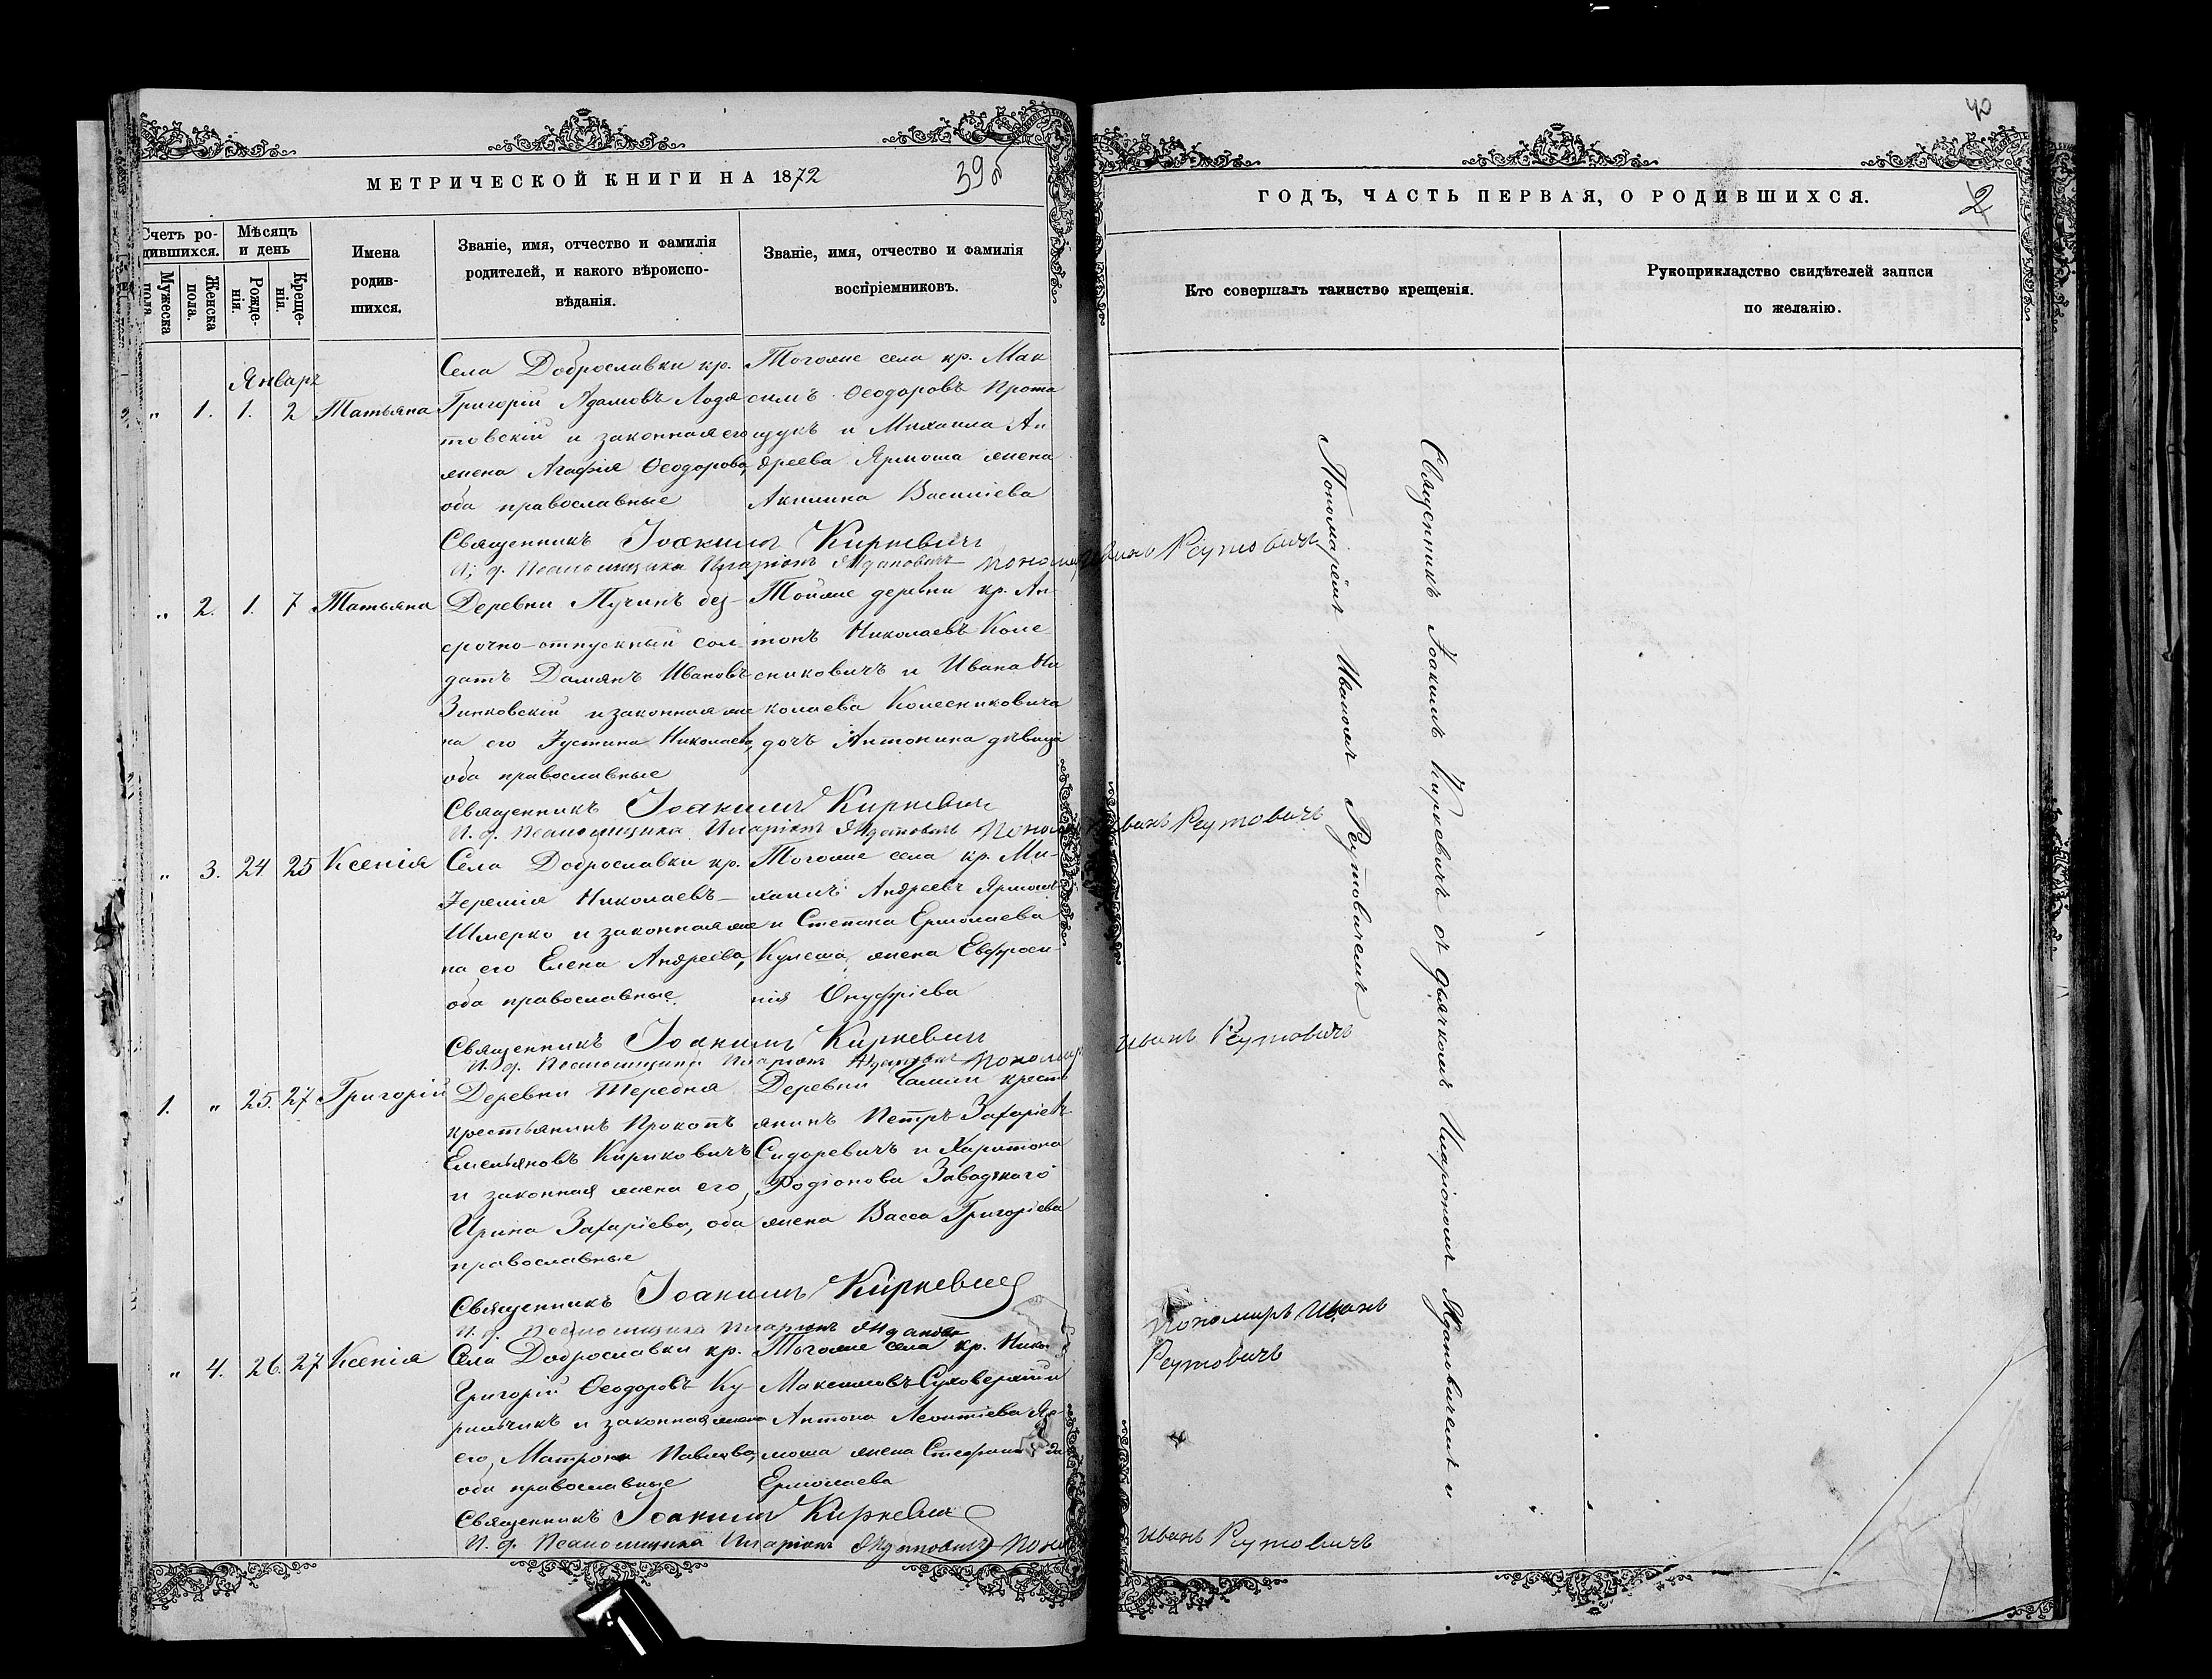 40
МЕТРИЧЕСКОЙ КНИГИ НА 1872
39 б
Счетъ ро-
дившихся.
Мѣсяцъ
и день
Мужеска
пола.
Женска
пола.
Рожде-
нія.
Креще-
нія.
Имена
родив-
шихся.
Званіе, имя, отчество и фамилія
родителей, и какого вѣроиспо-
вѣданія.
Званіе, имя, отчество и фамилія
воспріемниковъ.
Январь
„ 1. 1. 2 Татьяна
Села Доброславки кр.
Григорій Адамовъ Лодя
товскій и законная его
жена Агафія Ѳеодорова,
оба православные
Тогоже села кр. Мак
симъ Ѳеодоровъ Прота
щукъ и Михаила Ан
дреева Ярмоша жена
Акилина Василіева
Священникъ Іоакимъ Киркевичъ
И. д. Псаломщика Иларіонъ Ждановичъ Пономарь Иванъ Реутовичъ
„ 2. 1. 7 Татьяна
Деревни Пучинъ без-
срочно-отпускный сол-
датъ Даміянъ Ивановъ
Зинковскій и законная же
на его Іустина Николаева,
оба православные
Тойже деревни кр. Ан-
тонъ Николаевъ Коле
сниковичъ и Ивана Ни
колаева Колесниковича
дочь Антонина дѣвица
Священникъ Іоакимъ Киркевичъ
И. д. Псаломщика Иларіонъ Ждановичъ Пономарь Иванъ Реутовичъ
„ 3. 24 25 Ксенія
Села Доброславки кр.
Іеремія Николаевъ-
Шмерко и законная же
на его Елена Андреева,
оба православные.
Тогоже села кр. Ми-
хаилъ Андреевъ Ярмошъ
и Степана Ермолаева
Кулеша, жена Евфроси-
нія Онуфріева
Священникъ Іоакимъ Киркевичъ
И. д. Псаломщика Иларіонъ Ждановичъ Пономарь Иванъ Реутовичъ
1. „ 25. 27 Григорій
Деревни Теребня
крестьянинъ Прокопъ
Емельяновъ Кириковичъ
и законная жена его,
Ирина Захаріева, оба
православные
Деревни кресть
янинъ Петръ Захаріевъ
Сидоревичъ и Харитона
Родіонова Завадскаго
жена Васса Григоріева
Священникъ Іоакимъ Киркевичъ
И. д. Псаломщика Иларіонъ Ждановъ
Пономарь Иванъ
Реутовичъ
„ 4. 26. 27 Ксенія
Села Доброславки кр.
Григорій Ѳеодоровъ Ку-
рильчикъ и законная жена
его, Матрона Павлова,
оба православные
Тогоже села кр. Нико
Максимовъ Суховерхій и
Антона Леонтіева Яр-
моша жена
Ермолаева
Священникъ Іоакимъ Киркевичъ
И. д. Псаломщика Иларіонъ Ждановичъ Пономарь Иванъ Реутовичъ
ГОДЪ, ЧАСТЬ ПЕРВАЯ, О РОДИВШИХСЯ.
2
Кто совершалъ таинство крещенія.
Рукоприкладство свидѣтелей записи
по желанію.
Священникъ Іоакимъ Киркевичъ съ дьячкомъ Иларіономъ Ждановичемъ и
Пономаремъ Иваномъ Реутовичемъ